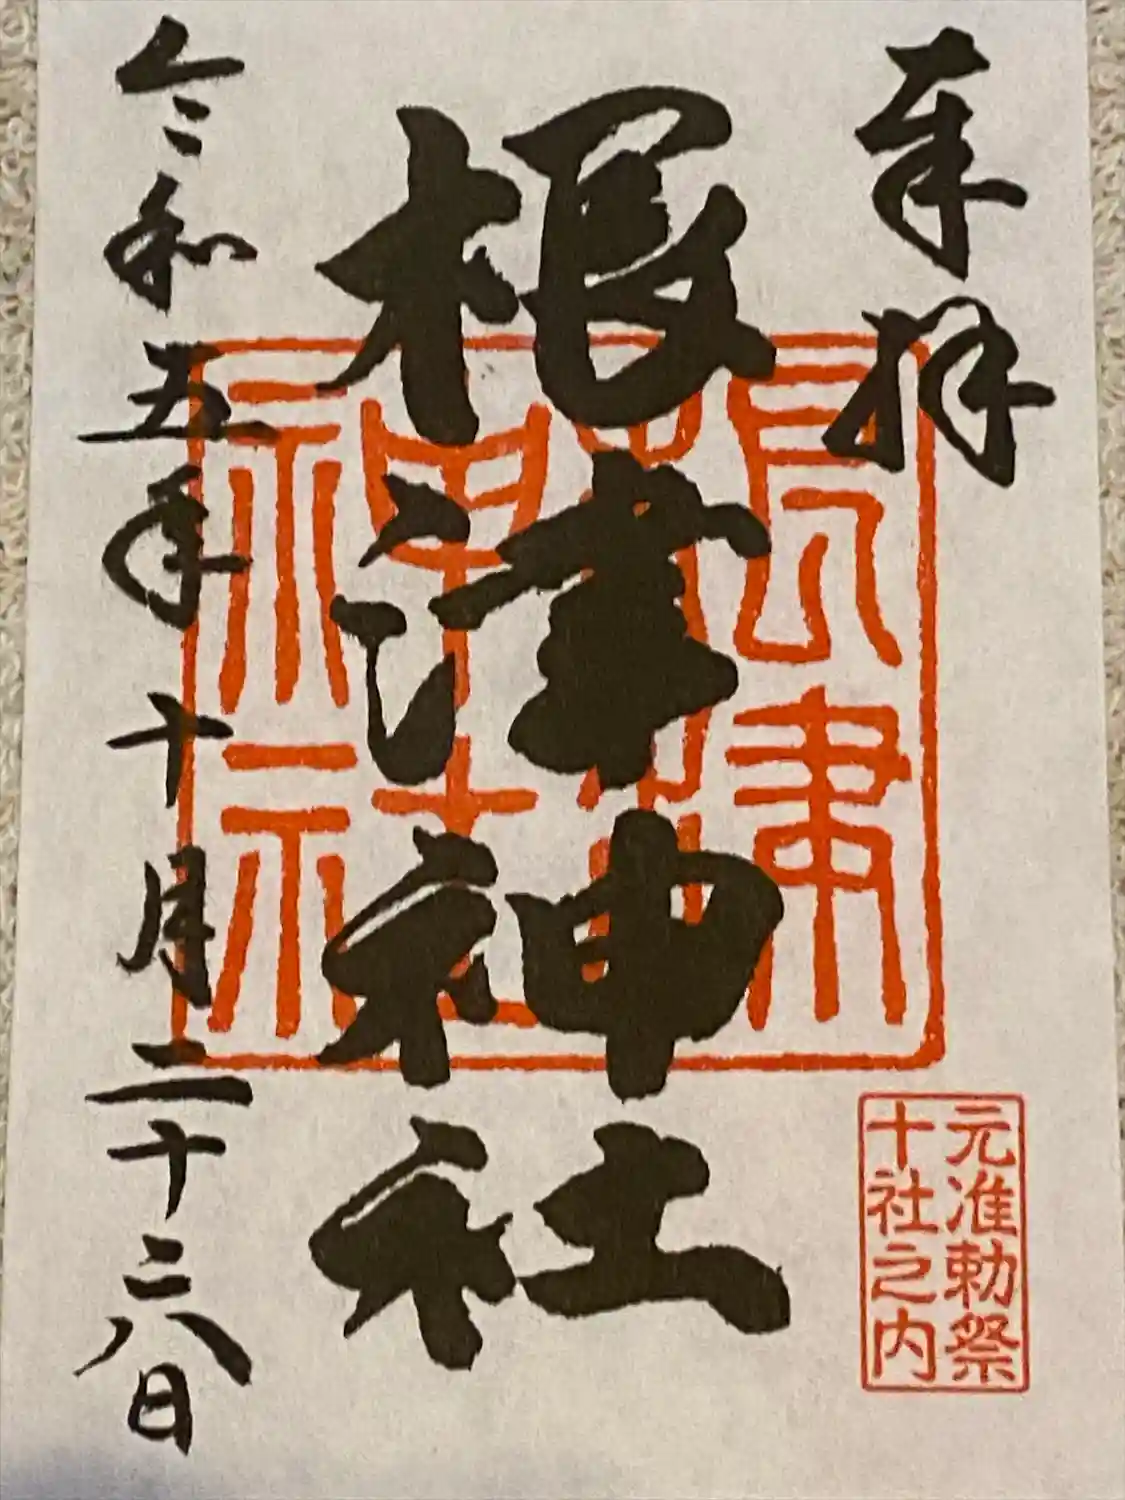 奉拝
根津神社
令和五年十月二十六日
根津
神社
元准勅祭
十社之内